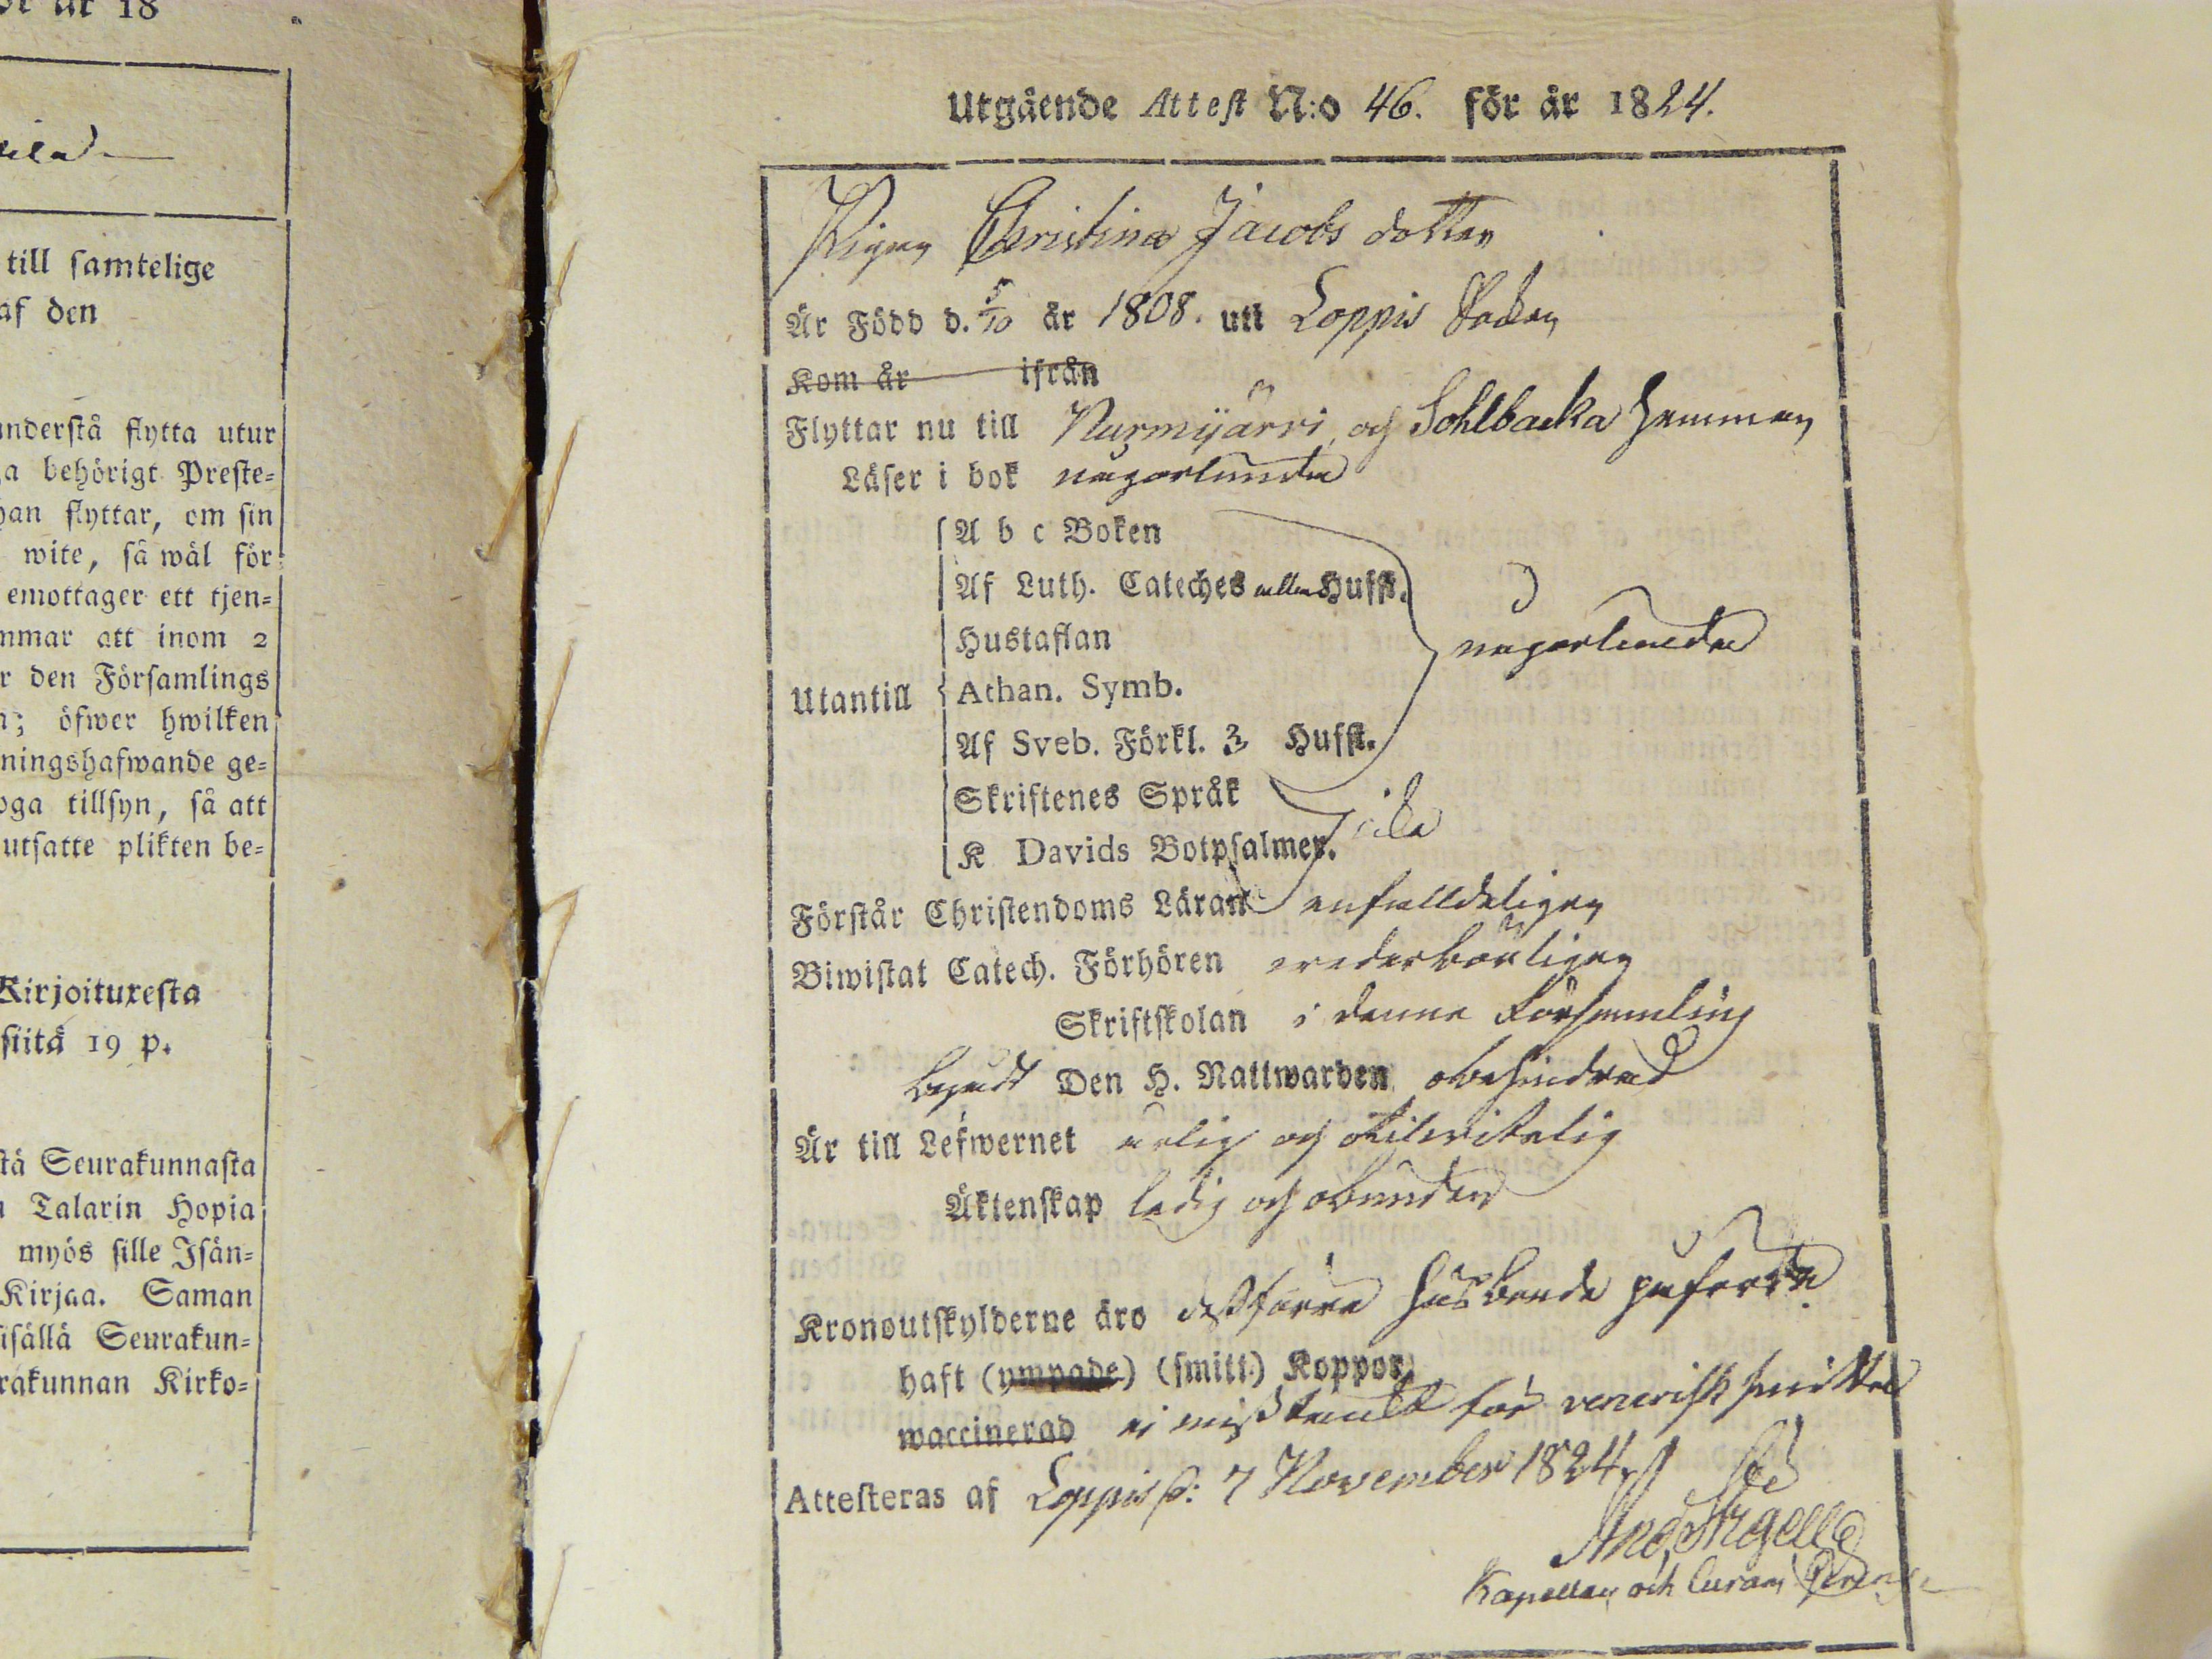 ör år 18
till samtelige
af den
understå flytta utur
a behörigt Preste=
han flyttar, om sin
wite, så wäl för
emottager ett tjen=
mmar att inom 2
r den Församlings
n; öfwer hwilken
ningshafwande ge=
oga tillsyn, så att
utsatte plikten be=
Kirjoituxesta
stitä 19 p.
stä Seurakunnasta
Talarin Hopia
myös sille Isän=
Kirjaa. Saman
isällä Seurakun=
rakunnan Kirko=
Utgående Attest N:o 46. för år 1824.
Pigan Christina Jacobs dotter
Är Född d. 5/10 år 1808. uti Loppis Socken
Kom år ifrån
Flyttar nu till Nurmijärvi och Sohlbacka hemman
Läser i bok någorlunda
A b c Boken
Af Luth. Cateches alla Hufst.
Hustaflan
någorlunda
Utantill
Athan. Symb.
Af Sveb. Förkl. 3 Hufst.
Skriftenes Språk
K Davids Botpsalmer. icke
Förstår Christendoms Läran enfalldeligen
Biwistat Catech. Förhören wederbörligen
Skriftskolan i denna Församling
begådt Den H. Nattwarden obehindrad
Är till Lefwernet ärlig och otilvitelig
Äktenskap ledig och obunden
Kronoutskylderne äro dess förra husbonde påförde
haft (ympade) (smitt.) Koppor,
waccinerad ej misstänkt för venerisk smitta
Attesteras af Loppis d: 7 November 1824
And. Argell
Kapellan och Curam Gerens